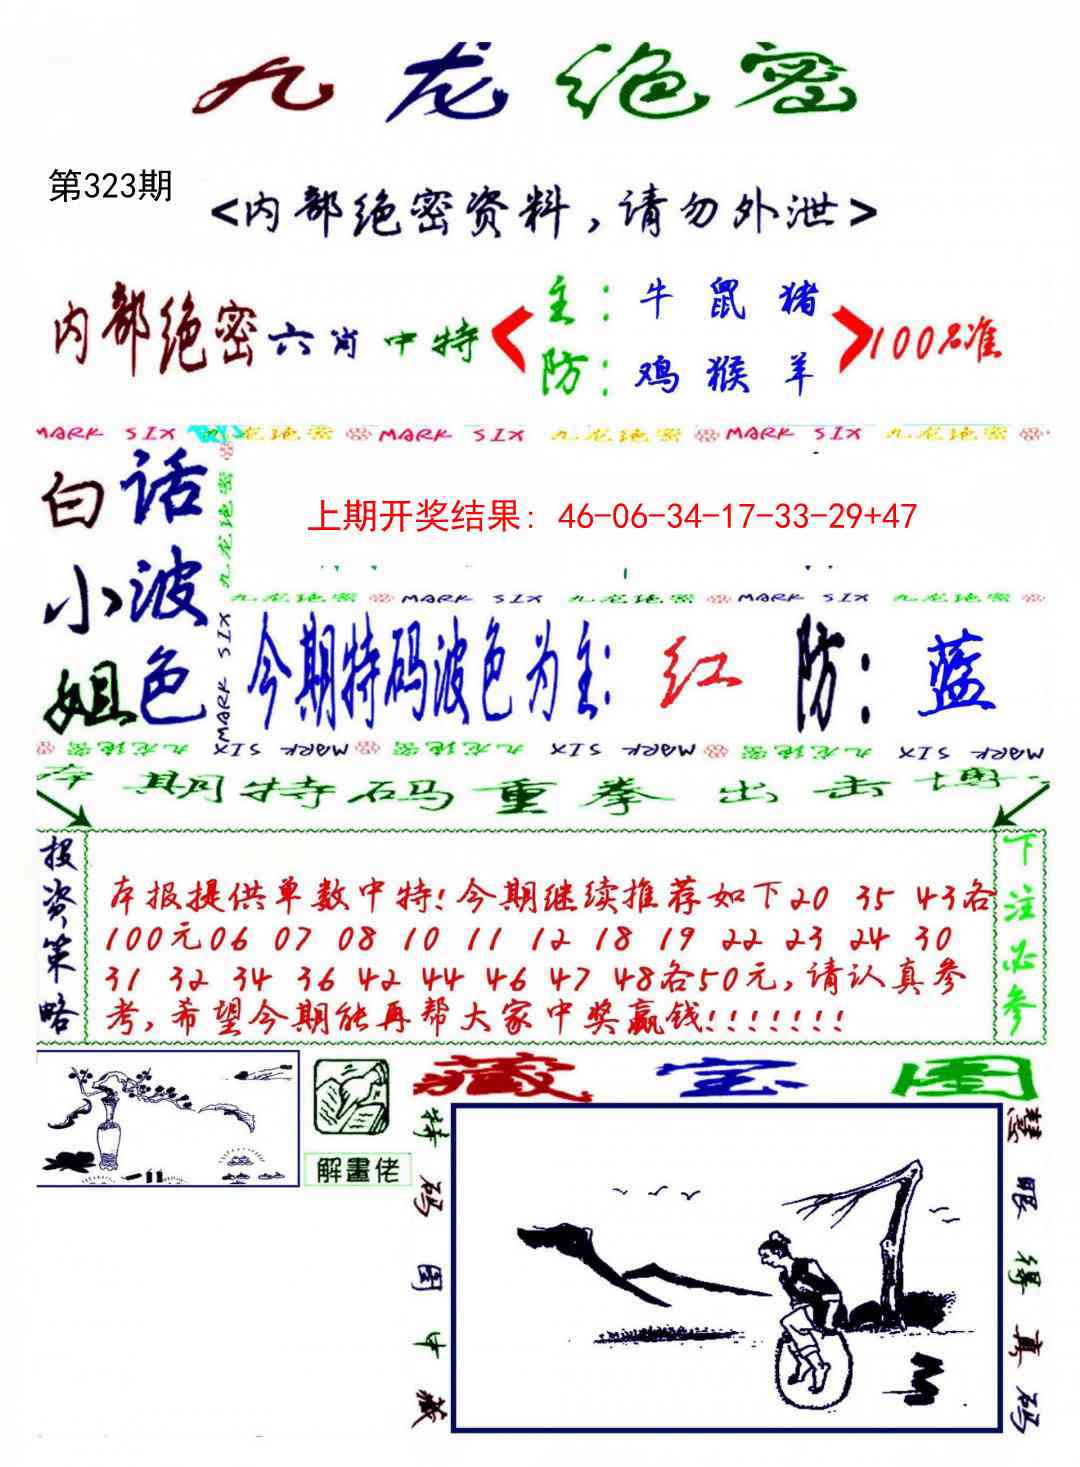 九龙绝密
第323期
<内部绝密资料,请勿外泄>
内部绝密六肖中特
主:牛 鼠 猪
防:鸡 猴 羊
100%准
MARK SIX 九龙绝密 MARK SIX 九龙绝密 MARK SIX 九龙绝密
白小姐
话波色
九龙绝密
MARK SIX
上期开奖结果: 46-06-34-17-33-29+47
九龙绝密 MARK SIX 九龙绝密 MARK SIX 九龙绝密
今期特码波色为主: 红 防: 蓝
九龙绝密 MARK SIX 九龙绝密 MARK SIX 九龙绝密 MARK SIX
本期特码重拳出击博
投资策略
本报提供单数中特!今期继续推荐如下20 35 43各
100元06 07 08 10 11 12 18 19 22 23 24 30
31 32 34 36 42 44 46 47 48各50元,请认真参
考,希望今期能再帮大家中奖赢钱!!!!!!!
下注必参
藏宝图
解畫佬
特码图中藏
慧眼得真码